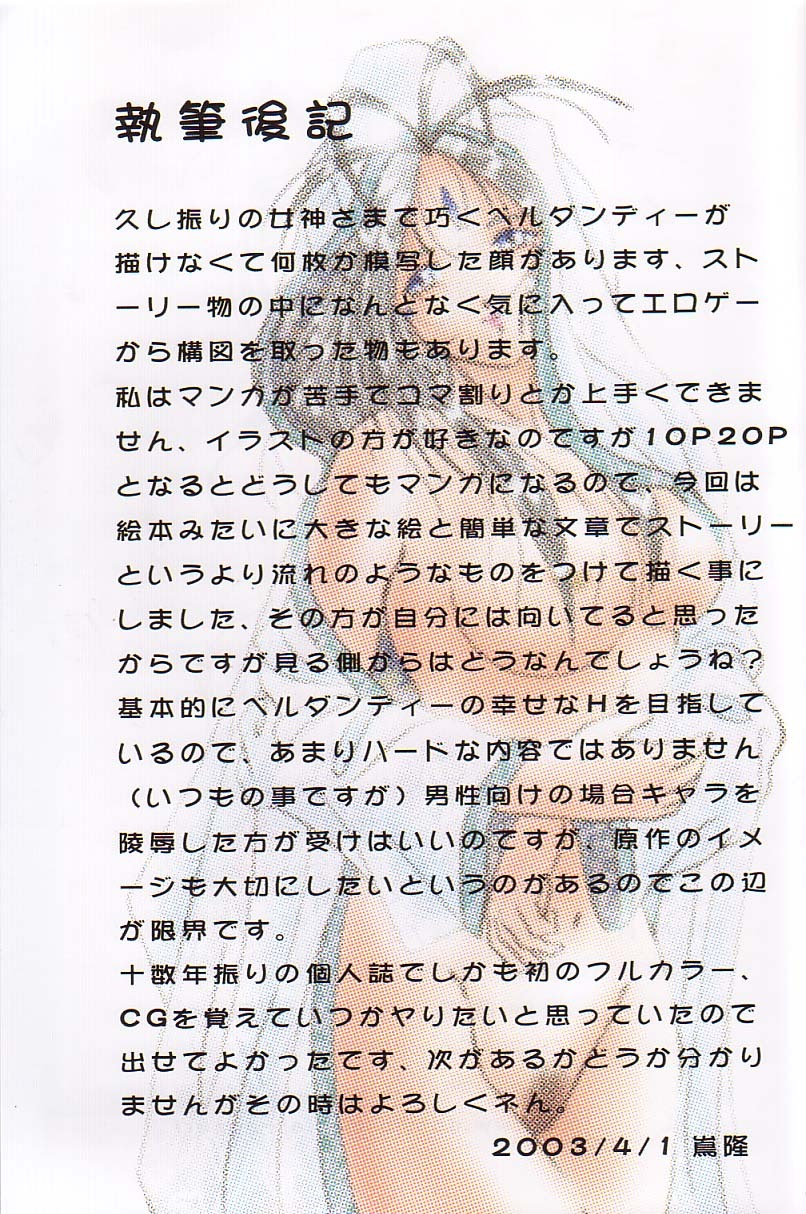 執筆後記
久し振りの女神さまで巧くベルダンディーが
描けなくて何枚か模写した顔があります、スト
ーリー物の中になんとなく気に入ってエロゲー
から構図を取った物もあります。
私はマンガが苦手でコマ割りとか上手くできま
せん、イラストの方が好きなのですが10P20P
となるとどうしてもマンガになるので、今回は
絵本みたいに大きな絵と簡単な文章でストーリー
というより流れのようなものをつけて描く事に
しました、その方が自分には向いてると思った
からですが見る側からはどうなんでしょうね?
基本的にベルダンディーの幸せなHを目指して
いるので、あまりハードな内容ではありません
(いつもの事ですが)男性向けの場合キャラを
陵辱した方が受けはいいのですが、原作のイメ
ージも大切にしたいというのがあるのでこの辺
が限界です。
十数年振りの個人誌でしかも初のフルカラー、
CGを覚えていつかヤりたいと思っていたので
出せてよかったです、次があるかどうか分かり
ませんがその時はよろしくネん。
2003/4/1 嵩隆